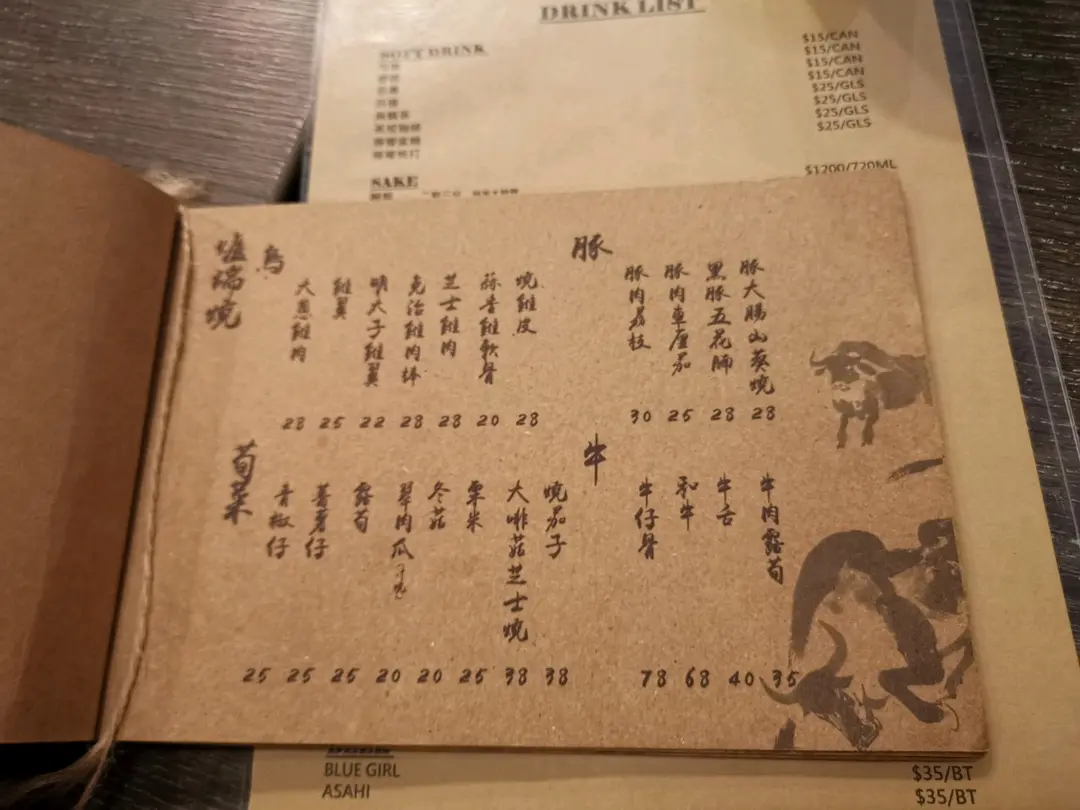 DRINK LIST
SOFT DRINK
$15/CAN
$15/CAN
$15/CAN
$15/CAN
$25/GLS
$25/GLS
$25/GLS
$25/GLS
SAKE
$1200/720ML
爐瑞燒
鳥
大蔥雞肉 28
雞翼 25
明太子雞翼 22
免治雞肉棒 28
芝士雞肉 28
蒜香雞軟骨 20
燒雞皮 28
豚
豚肉荔枝 30
豚肉車厘茄 25
黑豚五花腩 28
豚大腸山葵燒 28
荀菜
青椒仔 25
薯仔 25
露荀 25
翠肉瓜 20
冬菇 20
粟米 25
大啡菇芝士燒 38
燒茄子 38
牛
牛仔骨 78
和牛 68
牛舌 40
牛肉露荀 35
BLUE GIRL $35/BT
ASAHI $35/BT